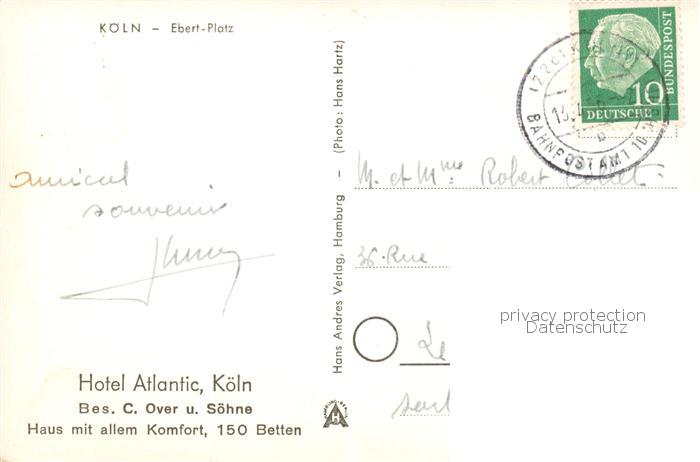 KÖLN – Ebert-Platz
amical
souvenir
Hotel Atlantic, Köln
Bes. C. Over u. Söhne
Haus mit allem Komfort, 150 Betten
Hans Andres Verlag, Hamburg – (Photo: Hans Hartz)
BAHNPOSTAMT 10
10
DEUTSCHE
BUNDESPOST
M. et Mme Robert
36. Rue
privacy protection
Datenschutz